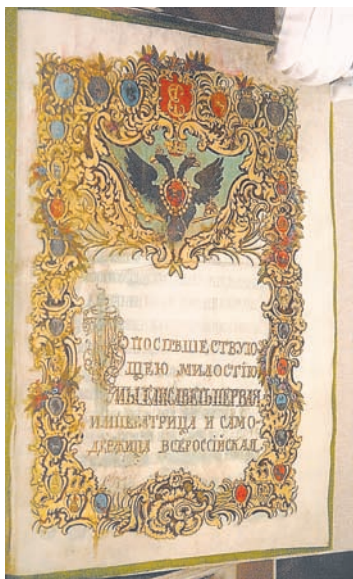 ПОСПѢШЕСТВУЮ
ЩЕЮ МИЛОСТІЮ
МЫ ЕЛИСАВЕТЪ ПЕРВАЯ
ИМПЕРАТРИЦА И САМО-
ДЕРЖИЦА ВСЕРОССІЙСКАЯ.